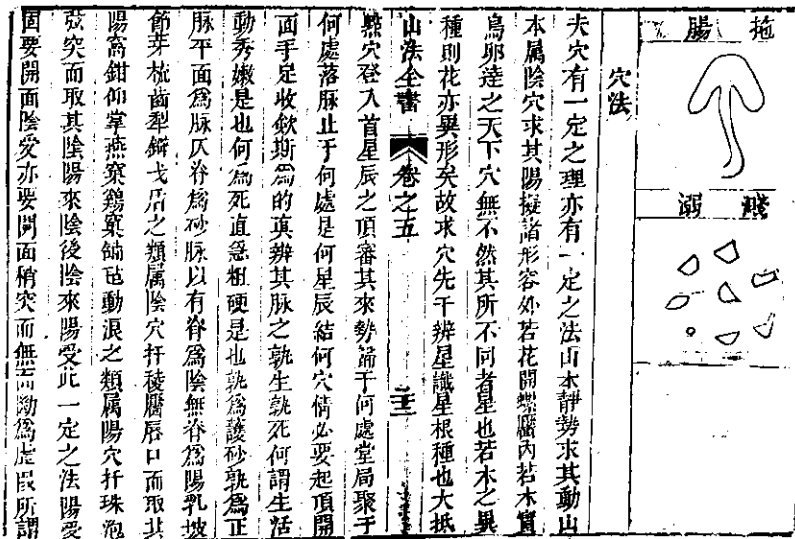 拖腸
溺
穴法
夫穴有一定之理亦有一定之法山本靜勢求其動山
本属陰穴求其陽擬諸形容如若花開靨內若木實
鳥卵達之天下穴無不然其所不同者星也若木之異
種則花亦異形矣故求穴先于辨星識星根種也大抵
山法全書 卷之五
點穴登入首星辰之頂審其來勢歸于何處堂局聚于
何處落脉止于何處是何星辰結何穴情必要起頂開
面手足收斂斯爲的真辨其脉之孰生孰死何謂生活
動秀嫩是也何爲死直急粗硬是也孰爲護砂孰爲正
脉平面爲脉仄脊爲砂脉以有脊爲陰無脊爲陽乳坡
節芽梳齒犁鐴戈盾之類属陰穴扦稜靨唇口而取其
陽窩鉗仰掌燕窠鷄窠鍋底動浪之類属陽穴扦珠泡
弦突而取其陰陽來陰後陰來陽受此一定之法陽受
固要開面陰受亦要開面稍突而無面爲虛所謂